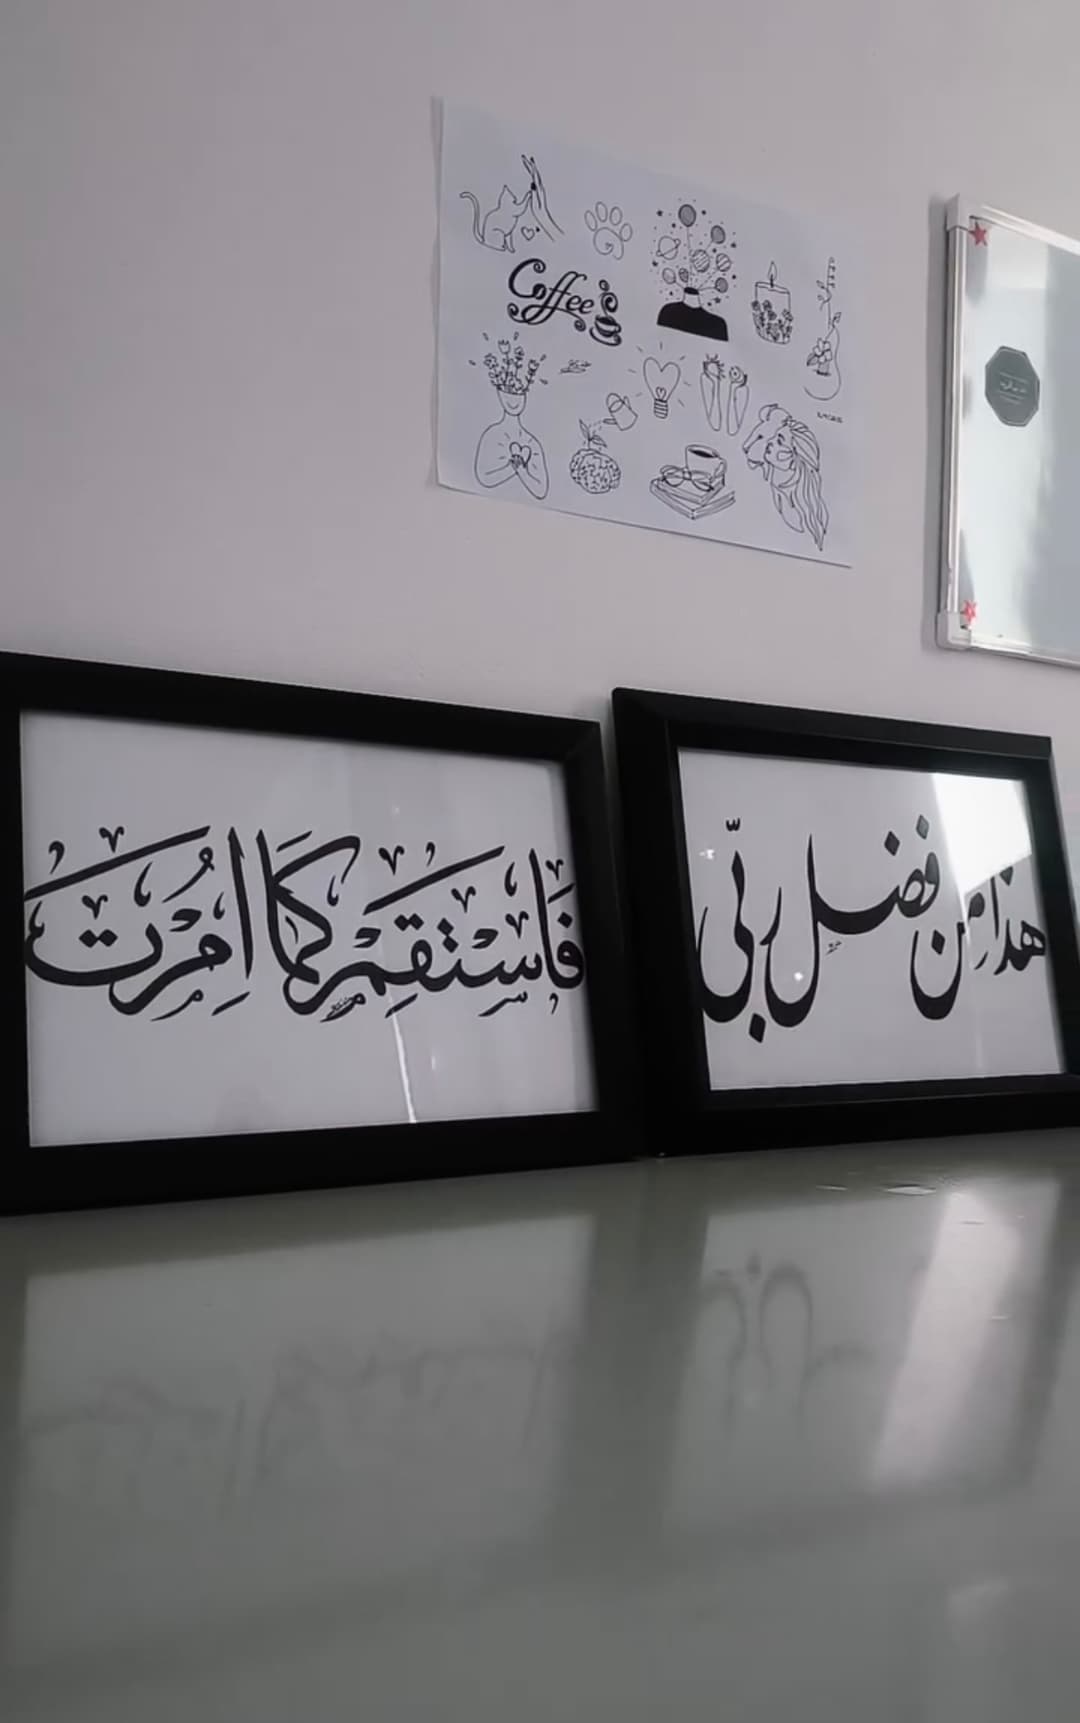 Coffee
فَاسْتَقِمْ كَمَا اُمِرْتَ
هذا مِن فضل ربّي